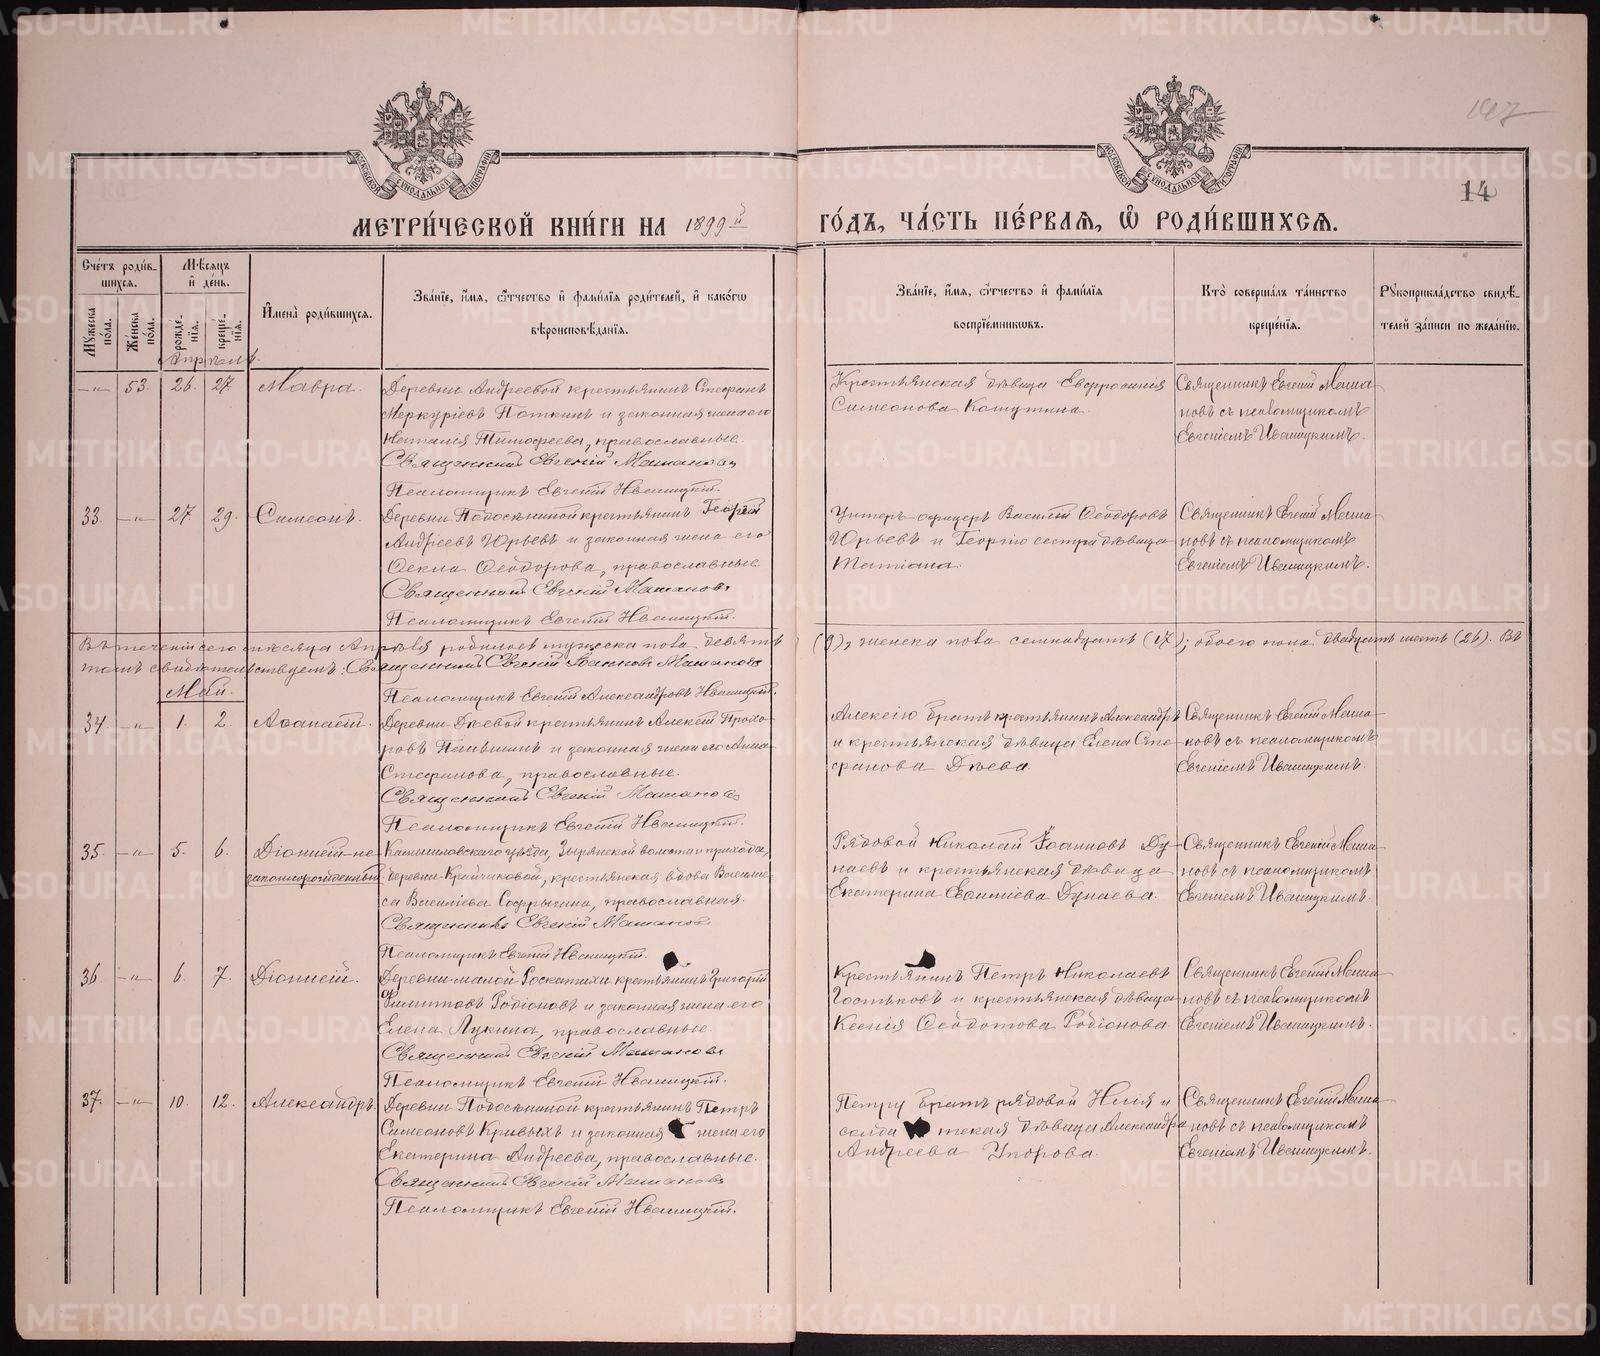 147
14
МОСКОВСКОЙ СѴНОДАЛЬНОЙ ТИПОГРАФІИ
МОСКОВСКОЙ СѴНОДАЛЬНОЙ ТИПОГРАФІИ
МЕТРИ́ЧЕСКОЙ КНИ́ГИ НА 1899й ГО́ДЪ, ЧА́СТЬ ПЕ́РВАЯ, Ѿ РОДИ́ВШИХСЯ.
Сче́тъ роди́в-
шихся.
Мꙋжеска по́ла.
Же́нска по́ла.
Мѣсяцъ
и҆ де́нь.
рожде́-
нїя.
креще́-
нїя.
И҆мена̀ роди́вшихся.
Зва́нїе, и҆́мя, ѻ҆́тчество и҆ фами́лїя роди́телей, и҆ како́гѡ
вѣроисповѣ́данїя.
Зва́нїе, и҆́мя, ѻ҆́тчество и҆ фами́лїя
воспрїе́мникѡвъ.
Кто̀ соверша́лъ та́инство
креще́нїя.
Рꙋкоприкла́дство свидѣ́-
телей за́писи по жела́нїю.
Апрѣль.
—„— 53. 26. 27. Мавра.
Деревни Андреевой крестьянинъ Стефанъ
Меркуріевъ Паткинъ и законная жена его
Наталія Тимофеева, православные.
Священникъ Евгеній Машановъ
Псаломщикъ Евгеній Иваницкій.
Крестьянская дѣвица Евфросинія
Симеонова Кошутина.
Священникъ Евгеній Маша-
новъ съ псаломщикомъ
Евгеніемъ Иваницкимъ.
33. —„— 27. 29. Симеонъ.
Деревни Подосѣниной крестьянинъ Георгій
Андреевъ Юрьевъ и законная жена его
Ѳекла Ѳеодорова, православные.
Священникъ Евгеній Машановъ
Псаломщикъ Евгеній Иваницкій.
Унтеръ-офицеръ Василій Ѳеодоровъ
Юрьевъ и Георгію сестра дѣвица
Татіана.
Священникъ Евгеній Маша-
новъ съ псаломщикомъ
Евгеніемъ Иваницкимъ.
Въ теченіи сего мѣсяца Апрѣля родилось мужеска пола девять (9), женска пола семнадцать (17); обоего пола двадцать шесть (26). Въ
томъ свидѣтельствуемъ: Священникъ Евгеній Іоанновъ Машановъ
Псаломщикъ Евгеній Александровъ Иваницкій.
Май.
34. —„— 1. 2. Аѳанасій.
Деревни Дѣевой крестьянинъ Алексій Прохо-
ровъ Паньшинъ и законная жена его Анна
Стефанова, православные.
Священникъ Евгеній Машановъ
Псаломщикъ Евгеній Иваницкій.
Алексію братъ крестьянинъ Александръ
и крестьянская дѣвица Елена Сте-
фанова Дѣева.
Священникъ Евгеній Маша-
новъ съ псаломщикомъ
Евгеніемъ Иваницкимъ.
35. —„— 5. 6. Діонисій-не
законнорожденный
Камышловскаго уѣзда, Зырянской волости и прихода,
деревни Крайчиковой, крестьянская вдова Василис-
са Василіева Софрыгина, православная.
Священникъ Евгеній Машановъ
Псаломщикъ Евгеній Иваницкій.
Рядовой Николай Іоанновъ Ду-
наевъ и крестьянская дѣвица
Екатерина Евсигніева Дунаева.
Священникъ Евгеній Маша-
новъ съ псаломщикомъ
Евгеніемъ Иваницкимъ.
36. —„— 6. 7. Діонисій.
Деревни-малой-Роскатихи крестьянинъ Григорій
Филипповъ Родіоновъ и законная жена его
Елена Лукина, православные.
Священникъ Евгеній Машановъ
Псаломщикъ Евгеній Иваницкій.
Крестьянинъ Петръ Николаевъ
Гостьковъ и крестьянская дѣвица
Ксенія Ѳеодотова Родіонова
Священникъ Евгеній Маша-
новъ съ псаломщикомъ
Евгеніемъ Иваницкимъ.
37. —„— 10. 12. Александръ.
Деревни Подосѣниной крестьянинъ Петръ
Симеоновъ Кривыхъ и законная жена его
Екатерина Андреева, православные.
Священникъ Евгеній Машановъ
Псаломщикъ Евгеній Иваницкій.
Петру братъ рядовой Илія и
солдатская дѣвица Александра
Андреева Упорова.
Священникъ Евгеній Маша-
новъ съ псаломщикомъ
Евгеніемъ Иваницкимъ.
METRIKI.GASO-URAL.RU